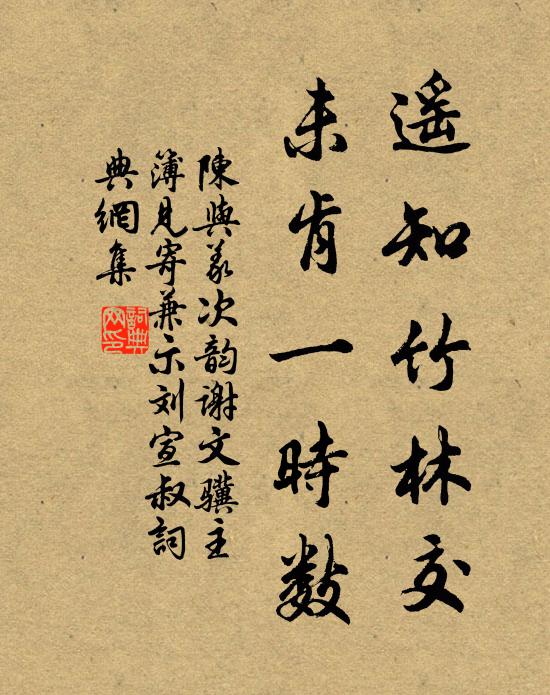 遥知竹林交
未肯一時数
陳與義次韵謝文驥主
簿見寄兼示刘宣叔詞
典網集
詞典網印